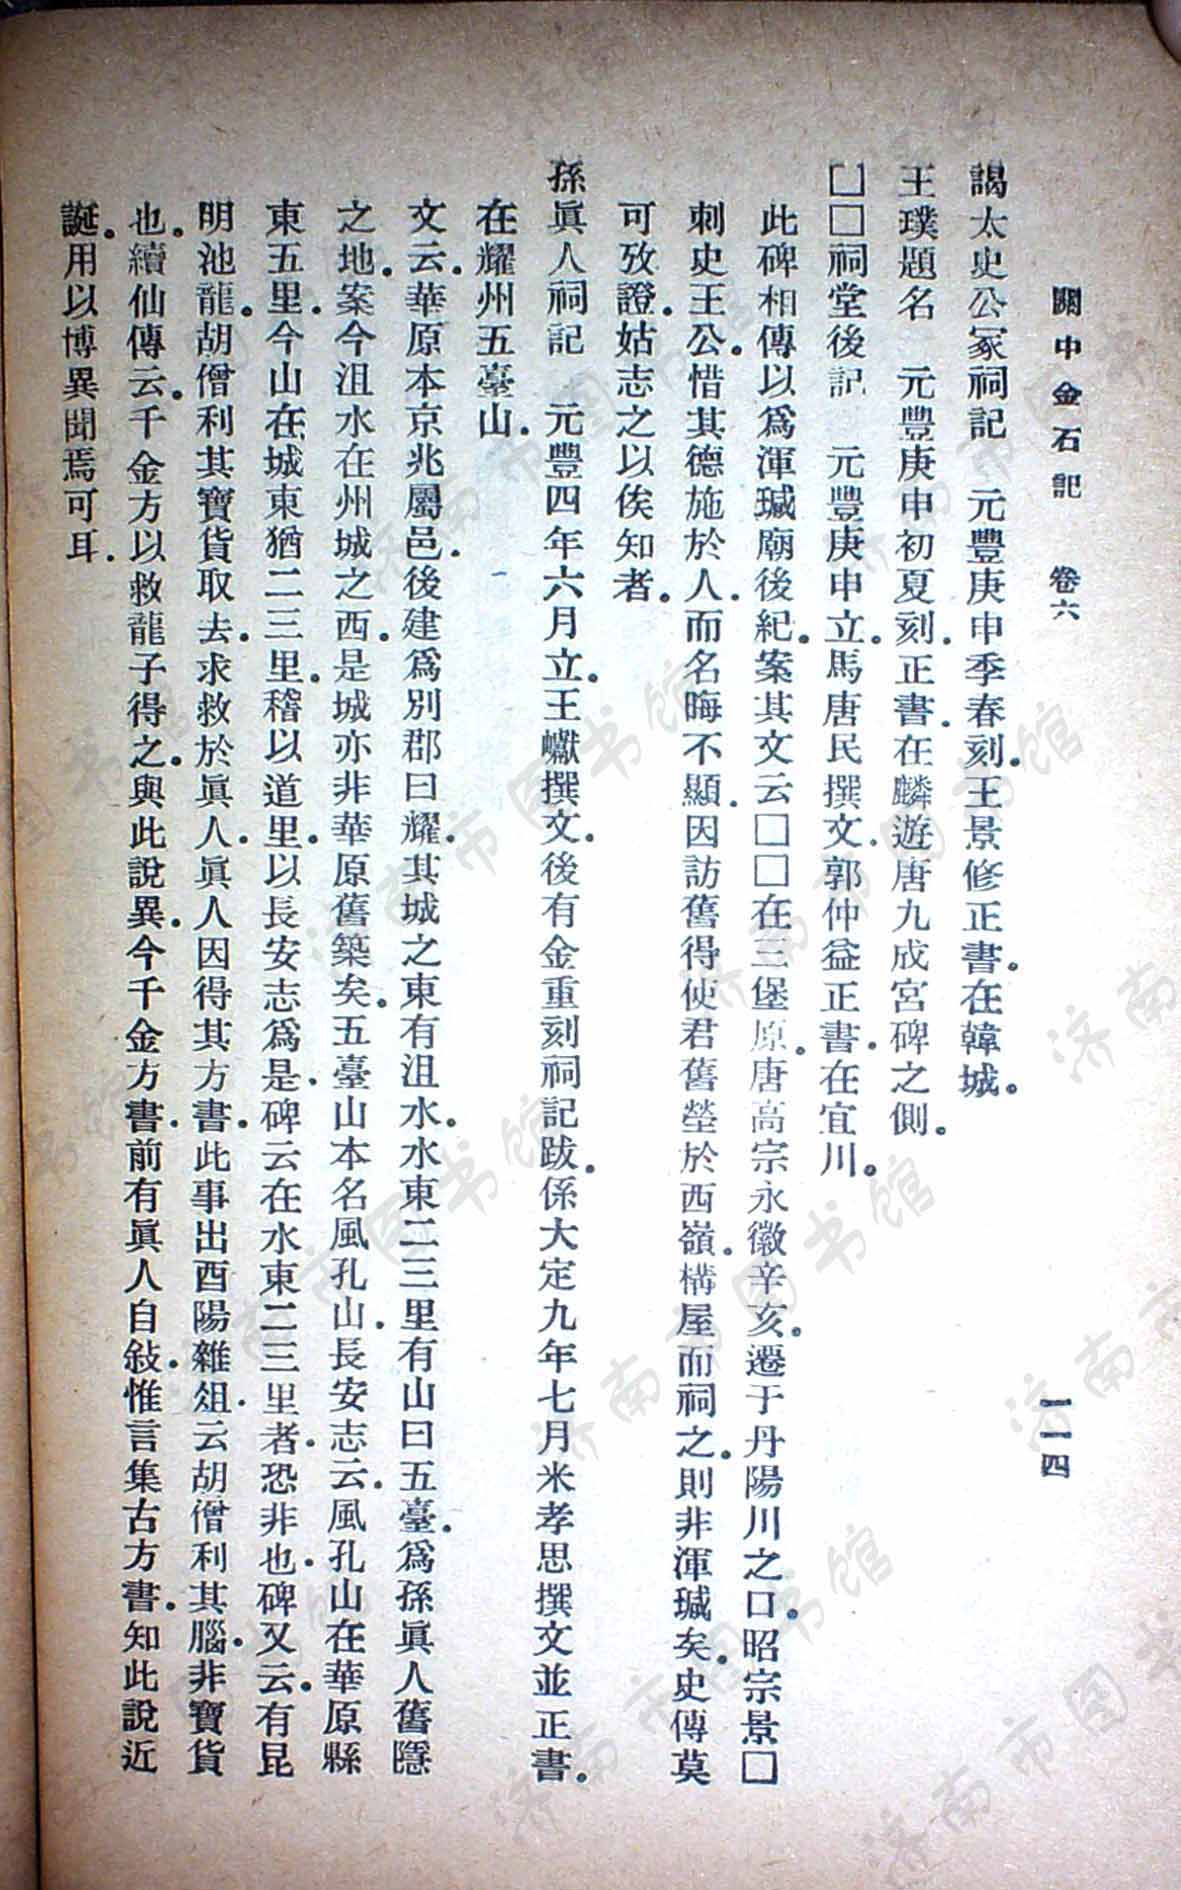 關中金石記 卷六 一一四
謁太史公冢祠記 元豐庚申季春刻。王景修正書。在韓城。
王璞題名 元豐庚申初夏刻。正書。在麟遊唐九成宮碑之側。
□□祠堂後記 元豐庚申立。馬唐民撰文。郭仲益正書。在宜川。
此碑相傳以爲渾瑊廟後紀。案其文云□□在三堡原。唐高宗永徽辛亥。遷于丹陽川之口。昭宗景□
刺史王公。惜其德施於人。而名晦不顯。因訪舊得使君舊塋於西嶺。構屋而祠之。則非渾瑊矣。史傳莫
可攷證。姑志之以俟知者。
孫眞人祠記 元豐四年六月立。王巘撰文。後有金重刻祠記跋。係大定九年七月米孝思撰文並正書。
在耀州五臺山。
文云。華原本京兆屬邑。後建爲別郡曰耀。其城之東有沮水。水東二三里有山曰五臺。爲孫眞人舊隱
之地。案今沮水在州城之西。是城亦非華原舊築矣。五臺山本名風孔山。長安志云。風孔山在華原縣
東五里。今山在城東猶二三里。稽以道里。以長安志爲是。碑云在水東二三里者。恐非也。碑又云。有昆
明池龍。胡僧利其寶貨取去。求救於眞人。眞人因得其方書。此事出酉陽雜俎。云胡僧利其腦。非寶貨
也。續仙傳云。千金方以救龍子得之。與此說異。今千金方書。前有眞人自敍。惟言集古方書。知此說近
誕。用以博異聞焉可耳。
济南市图书馆